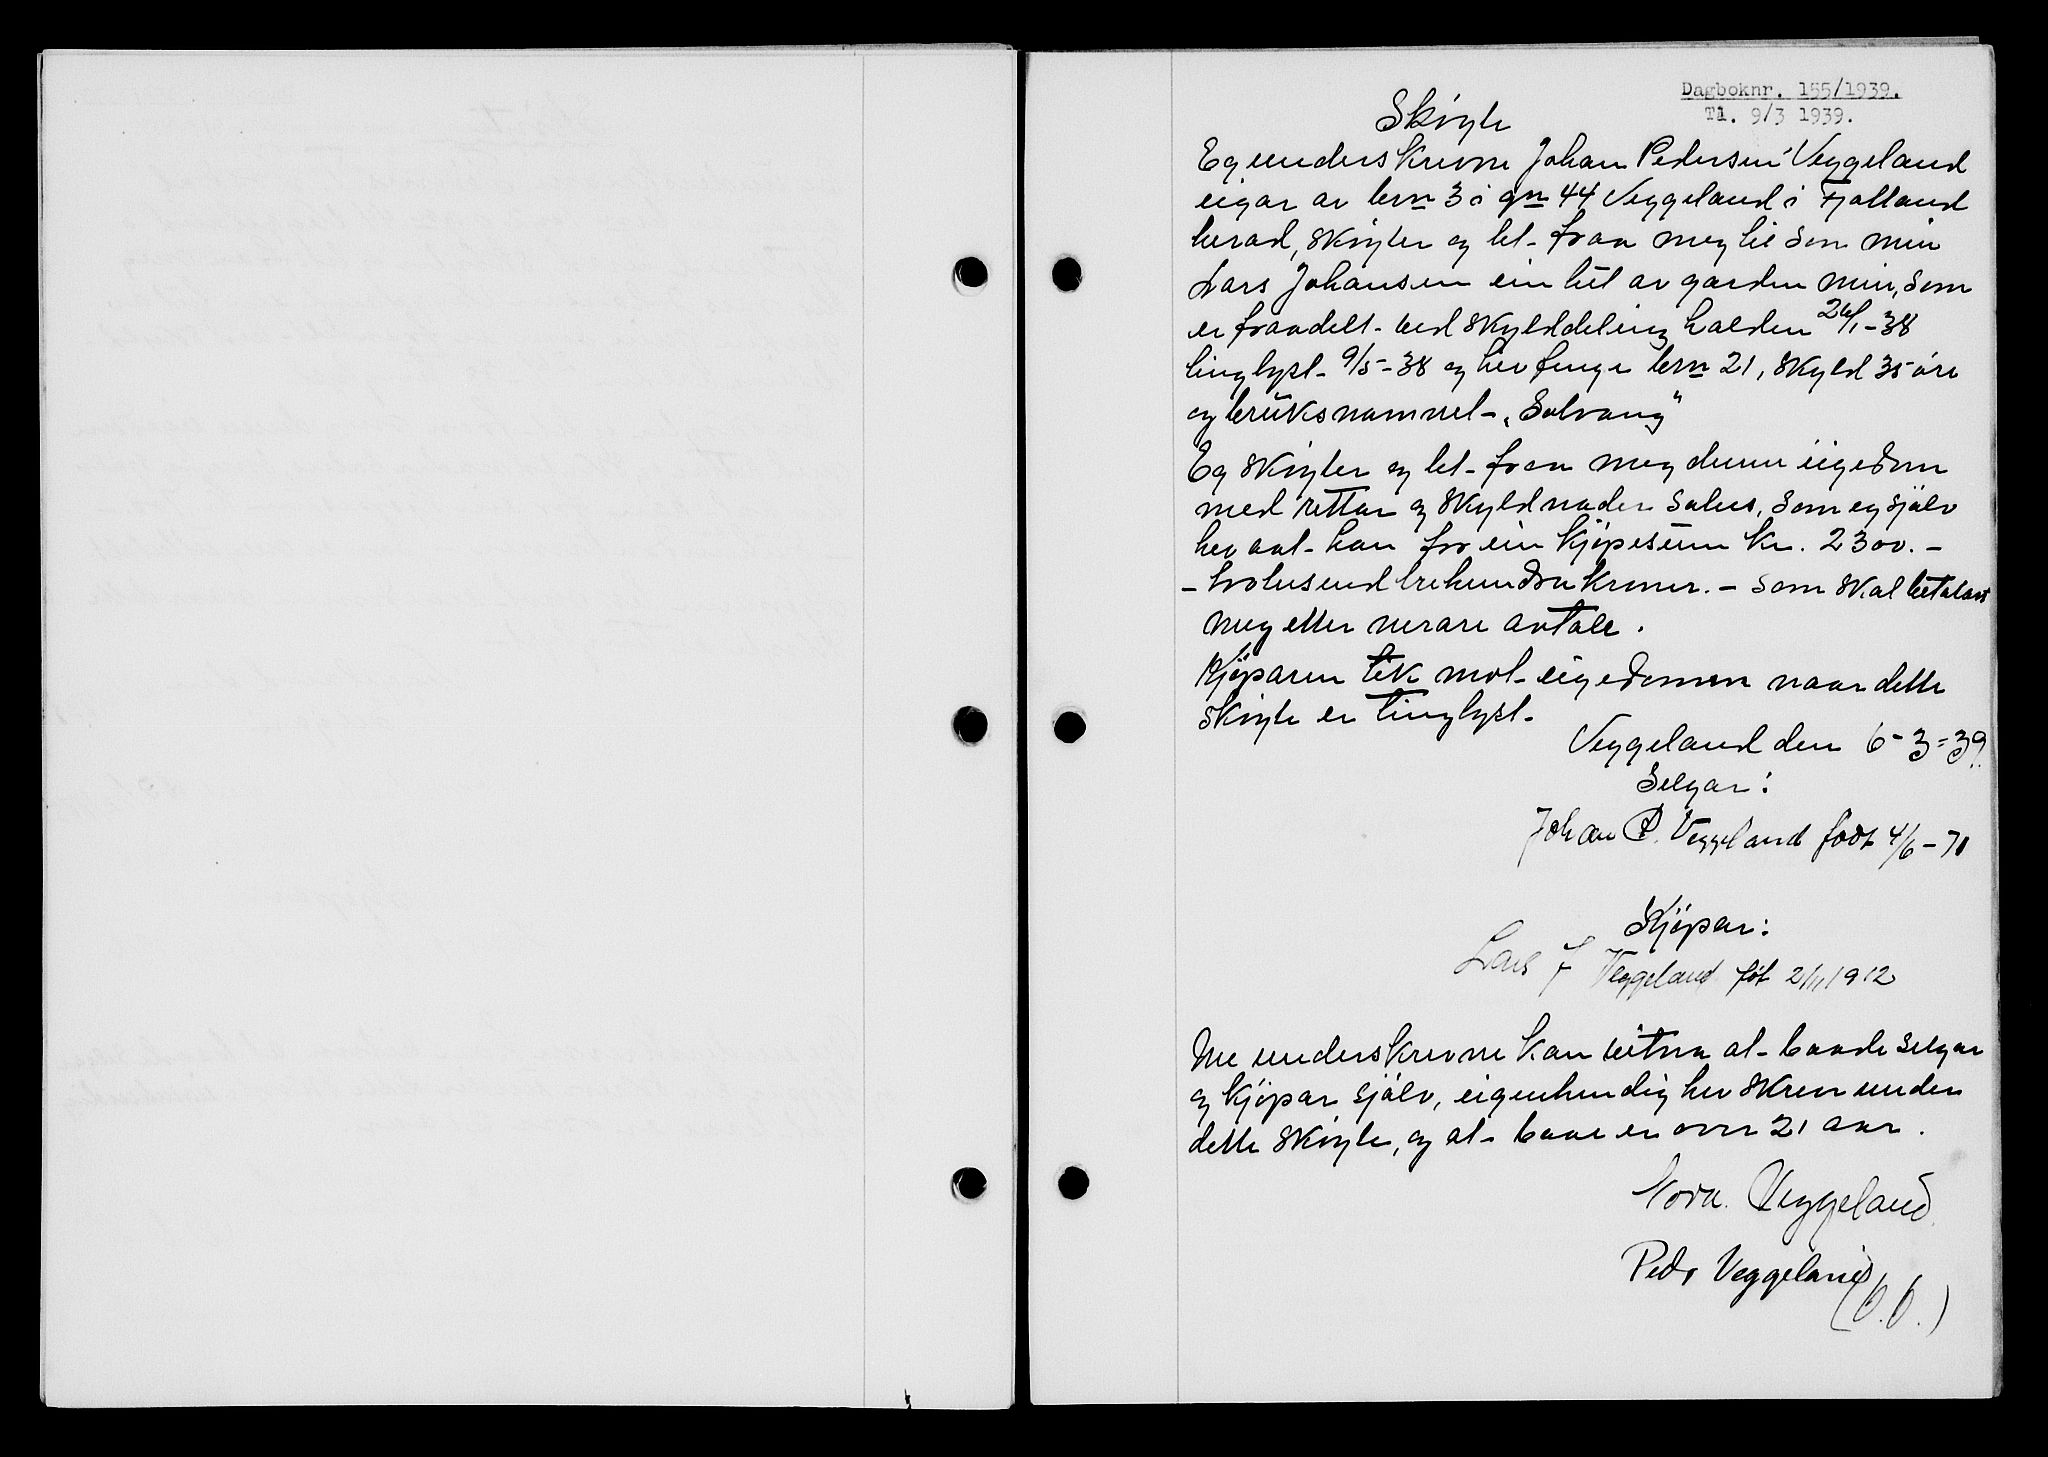 Dagboknr. 155/1939.
Tl. 9/3 1939.
Skøyte
Eg underskrevne Johan Pedersen Veggeland
eigar av brn 3 i gn 44 Veggeland i Fjotland
herad, skøyter og let fraa meg til son min
Lars Johansen ein lut av garden min, som
er fraadelt ved skylddeling halden 26/1-38
tinglyst 9/5-38 og hev fenge brn 21, skyld 35 øre
og bruksnamnet "Solvang"
Eg skøyter og let fraa meg denne eigedom
med rettar og skyldnader saleis, som eg sjølv
hev aat han for ein kjøpesum kr. 2300.-
- totusund trehundra kroner. - som skal betalast
meg etter nerare avtale.
Kjøparen tek mot eigedomen naar dette
skøyte er tinglyst.
Veggeland den 6-3-39.
Selgar:
Johan P. Veggeland født 4/6-71
Kjøpar:
Lars J Veggeland føt 2/11 1912
Me underskrevne kan vitna at baade selgar
og kjøpar sjølv, eigenhendig hev skreve under
dette skøyte, og at baae er over 21 aar.
Nora Veggeland.
Peder Veggeland